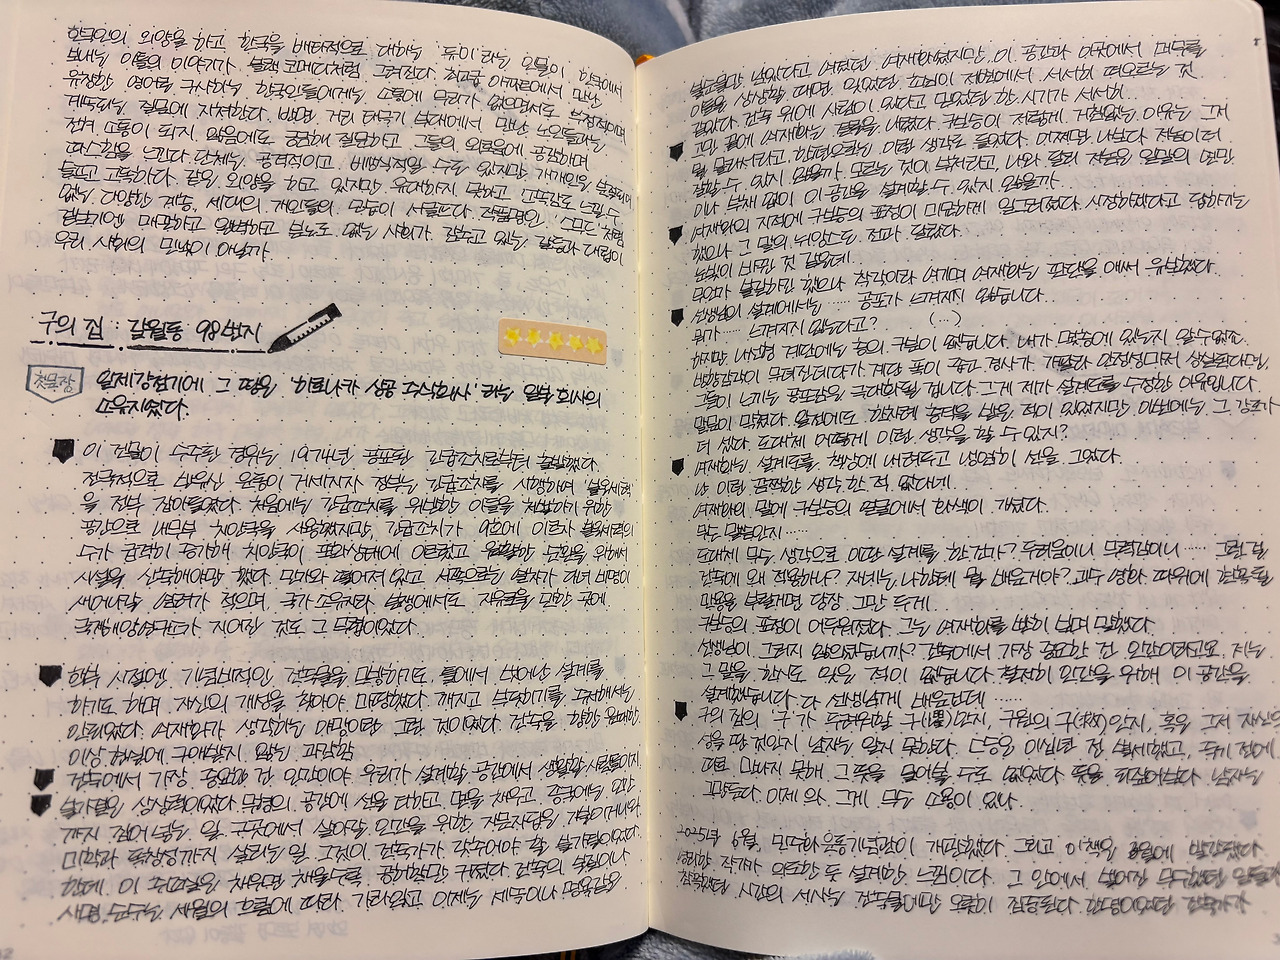 한국인의 외양을 하고 한국을 배타적으로 대하는 '듀이'라는 인물이 한국에서
보내는 이틀의 이야기가 블랙코미디처럼 그려진다. 최고급 아파트에서 만난
유창한 영어를 구사하는 한국인들에게는 소통에 무리가 없으면서도 부정적이며
계속되는 질문에 지쳐한다. 반면, 거리 태극기 부대에서 만난 노인들과는
전혀 소통이 되지 않음에도 궁금해 질문하고 그들의 외로움에 공감하며
따스함을 느낀다. 단체는 공격적이고 배타적일 수도 있지만 개개인은
들뜨고 고독하다. 같은 외양을 하고 있지만 유대하지 못하고 느낄 수
없는 다양한 계층, 세대의 개인들의 모습이 서글프다. 작품명인 '스무드'처럼
겉보기엔 매끈하고 완벽하고 없는 사회가 감추고 있는 갈등과 대립이
우리 사회의 민낯이 아닐까.
구의 집 : 갈월동 98번지
첫문장
일제강점기에 그 땅은 '히로나카 상공 주식회사'라는 일본 회사의
소유지였다.
이 건물이 수주된 경위는 1974년 공포된 긴급조치로부터 출발했다.
전국적으로 반유신 운동이 거세지자 정부는 긴급조치를 시행하여 불온세력
을 전부 잡아들였다. 처음에는 긴급조치를 위반한 이들을 체벌하기 위한
공간으로 내무부 치안국을 사용했지만, 긴급조치가 9호에 이르자 불온세력의
수가 급격히 증가해 치안국이 포화상태에 이르렀고 원활한 순환을 위해서
시설을 신축해야만 했다. 민가와 떨어져 있고 서쪽으로는 열차가 다녀 비명이
새어나갈 염려가 적으며, 국가 소유지라 분쟁에서도 자유로운 단 한 곳에
국제해양연구소가 지어진 것도 그 무렵이었다.
학부 시절엔 기념비적인 건축물을 답습하기도, 틀에서 벗어난 설계를
하기도 하며 자신의 개성을 찾아야 마땅했다. 깨지고 부딪히기를 두려워해서는
안 되었다. 여재화가 생각하는 야망이란 그런 것이었다. 건축을 향한 원대한
이상, 현실에 구애받지 않는 과감함
건축에서 가장 중요한 건 인간이야. 우리가 설계할 공간에서 생활할 사람들이지.
불가결은 상상력이었다. 무형의 공간에 선을 더하고 면을 채우고, 종국에는 인간
까지 집어넣는 일. 그곳에서 살아갈 인간을 위한 자문자답을 거듭하며
미학과 특장점까지 살리는 일. 그것이 건축가가 갖추어야 할 불가결이었다.
한데 이 취조실은 채우면 채울수록 공허함만 커졌다. 건축의 본질이나
사명, 순수는 세월의 흐름에 따라 가라앉고 이제는 세속이나 명욕같은
불순물만 남았다고 여겼던 여재화였지만 이 공간과 이곳에서 머무를
이들을 상상할 때면 잊었던 초심이 저편에서 서서히 떠오르는 것
같았다. 건축 위에 사람이 있다고 믿었던 한 시기가 서서히...
고민 끝에 여재화는 결론을 내렸다. 구보승이 저렇게 거침없는 이유는 그저
뭘 몰라서라고. 한편으로는 이런 생각도 들었다. 어쩌면 나보다 저놈이 더
잘할 수 있지 않을까. 모르는 것이 부럽다고, 나와 달리 저놈은 일말의 연민
이나 부채 없이 이 공간을 설계할 수 있지 않을까.
여재화의 지적에 구보승의 표정이 미묘하게 일그러졌다. 시정하겠다고 답하기는
했으나 그 말의 뉘앙스도 전과 달랐다.
눈빛이 바뀐 것 같은데
무언가 불길하긴 했으나 착각이라 여기며 여재화는 판단을 애써 유보했다.
선생님의 설계에서는 ...... 공포가 느껴지지 않습니다.
뭐가...... 느껴지지 않는다고? (...)
하지만 나선형 계단에는 층의 구분이 없습니다. 내가 몇층에 있는지 알 수 없죠.
방향감각이 무뎌진데다가 계단 폭이 좁고 경사가 가팔라 안정성마저 상실된다면,
그들이 느끼는 공포감은 극대화될 겁니다. 그게 제가 설계도를 수정한 이유입니다.
말문이 막혔다. 일전에도 한차례 충격을 받은 적이 있었지만 이번에는 그 강도가
더 셌다. 도대체 어떻게 이런 생각을 할 수 있지?
여재화는 설계도를 책상에 내려두고 냉연히 선을 그었다.
난 이런 끔찍한 생각 한 적 없다네.
여재화의 말에 구보승의 얼굴에서 화색이 가셨다.
무슨 말씀인지......
도대체 무슨 생각으로 이딴 설계를 한 건가? 두려움이니 무력감이니 ...... 그런 걸
건축에 왜 적용하나? 자네는 나한테 뭘 배운거야? 괴수 영화 따위에
만용을 부릴거면 당장 그만 두게.
구보승의 표정이 어두워졌다. 그는 여재화를 빤히 보며 말했다.
선생님이 그러지 않으셨습니까? 건축에서 가장 중요한 건 인간이라고요. 저는
그 말을 한시도 잊은 적이 없습니다. 철저히 인간을 위해 이 공간을
설계했습니다. 다 선생님께 배운건데 ......
구의 집의 '구'가 두려워할 구(懼)인지, 구원의 구(救)인지, 혹은 그저 자신의
성을 딴 것인지 남자는 알지 못한다. 그 승은 이십년 전 별세했고, 죽기 전에
따로 만나지 못해 그 뜻을 물어볼 수도 없었다. 뜻을 되짚어보다 남자는
그만둔다. 이제 와 그게 무슨 소용이 있나.
2025년 6월, 민주화운동기념관이 개관했다. 그리고 이 책은 8월에 발간됐다.
작가가 의도한 듯 설계한 느낌이다. 그 안에서 벌어진 무수했던 일들과
참혹했던 시간의 서사는 건축물에만 오롯이 집중된다. 한명이었던 건축가가